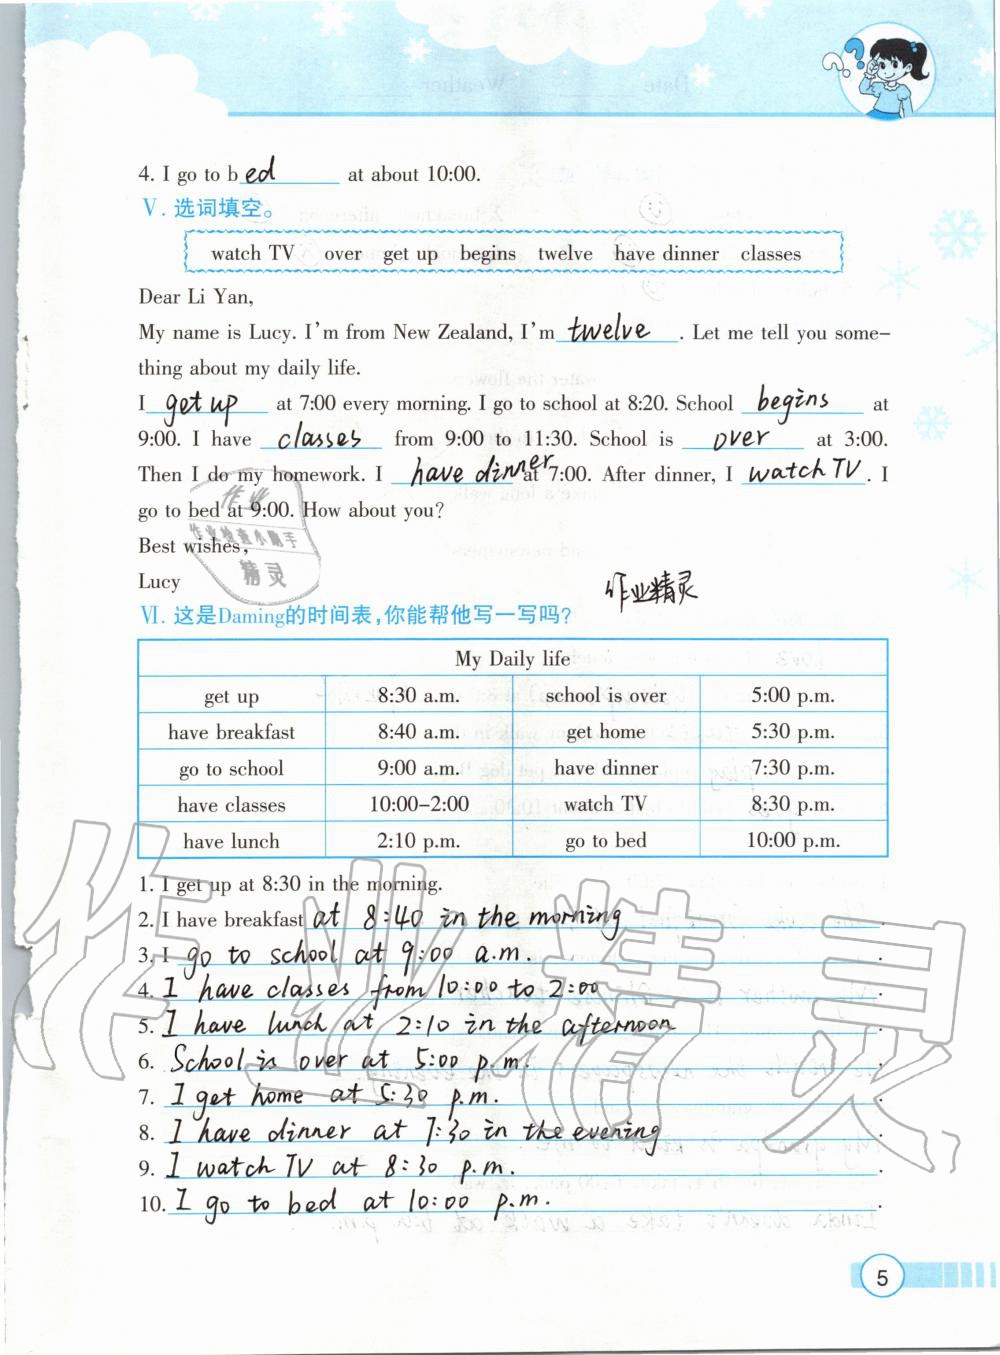 4. I go to bed at about 10:00.
Ⅴ. 选词填空。
watch TV over get up begins twelve have dinner classes
Dear Li Yan,
My name is Lucy. I'm from New Zealand, I'm twelve . Let me tell you some-
thing about my daily life.
I get up at 7:00 every morning. I go to school at 8:20. School begins at
9:00. I have classes from 9:00 to 11:30. School is over at 3:00.
Then I do my homework. I have dinner at 7:00. After dinner, I watch TV . I
go to bed at 9:00. How about you?
Best wishes,
Lucy
作业
作业检查小助手
精灵
作业精灵
Ⅵ. 这是Daming的时间表,你能帮他写一写吗?
My Daily life
get up 8:30 a.m. school is over 5:00 p.m.
have breakfast 8:40 a.m. get home 5:30 p.m.
go to school 9:00 a.m. have dinner 7:30 p.m.
have classes 10:00-2:00 watch TV 8:30 p.m.
have lunch 2:10 p.m. go to bed 10:00 p.m.
1. I get up at 8:30 in the morning.
2. I have breakfast at 8:40 in the morning .
3. I go to school at 9:00 a.m. .
4. I have classes from 10:00 to 2:00 .
5. I have lunch at 2:10 in the afternoon .
6. School is over at 5:00 p.m. .
7. I get home at 5:30 p.m. .
8. I have dinner at 7:30 in the evening .
9. I watch TV at 8:30 p.m. .
10. I go to bed at 10:00 p.m. .
作业精灵
5